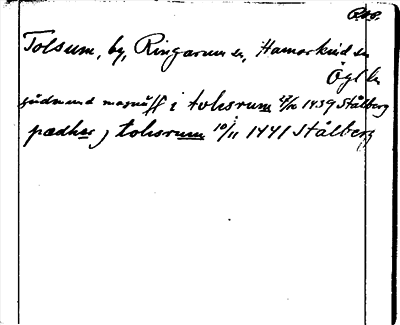 Tolsum, by, Ringarum sn, Hamarkind sn
Ögl ln
gudmund magnuss i tolsrum 1439 Stålberg
pædhar j tolsrum 10/11 1441 Stålberg